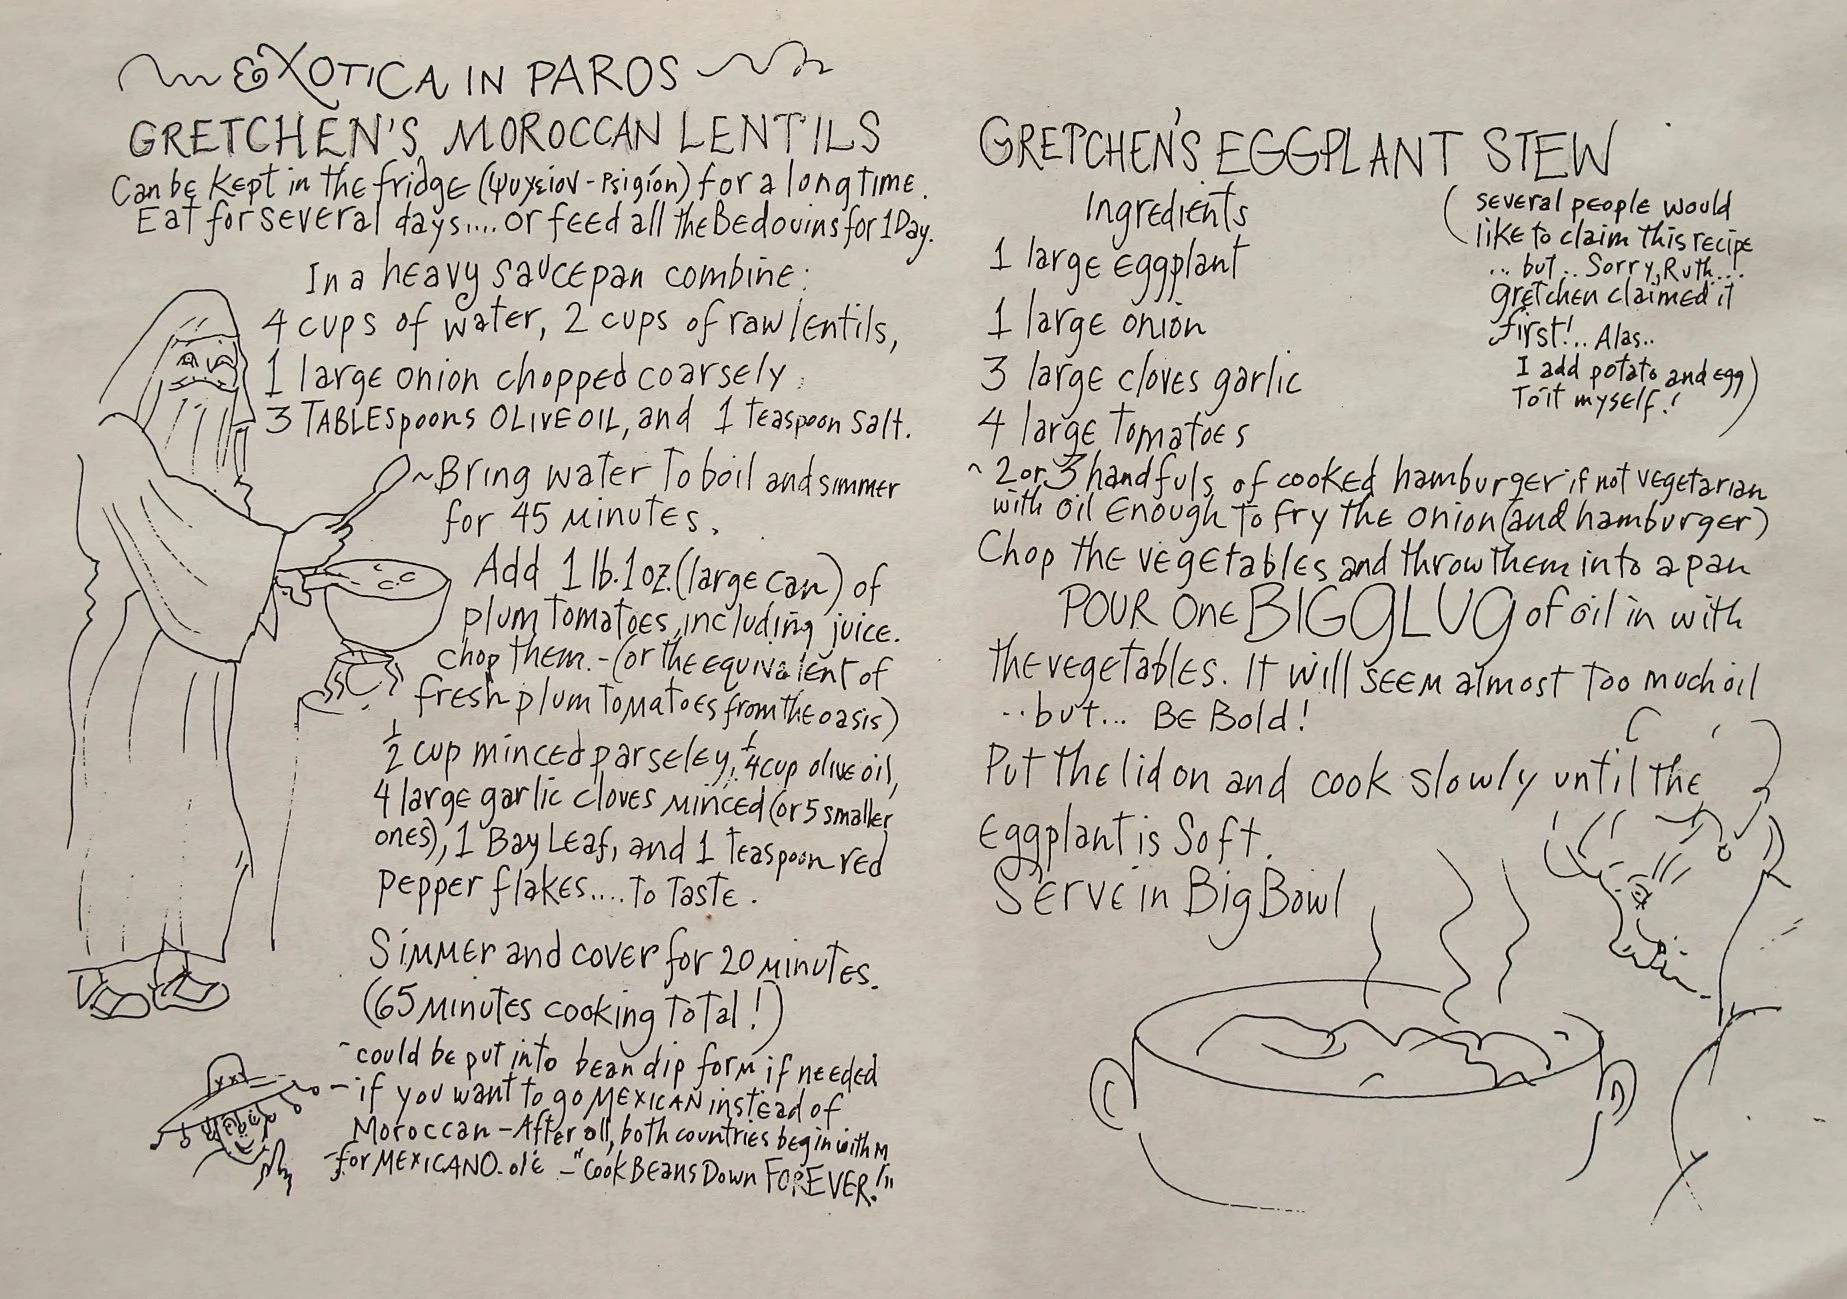 EXOTICA IN PAROS
GRETCHEN'S MOROCCAN LENTILS
Can be kept in the fridge (ψυγείον - Psigíon) for a long time.
Eat for several days.... or feed all the Bedouins for 1 Day.
In a heavy saucepan combine:
4 cups of water, 2 cups of raw lentils,
1 large onion chopped coarsely
3 TABLEspoons OLIVE OIL, and 1 teaspoon salt.
~Bring water to boil and simmer
for 45 minutes.
Add 1 lb. 1 oz. (large can) of
plum tomatoes, including juice.
chop them. - (or the equivalent of
fresh plum tomatoes from the oasis)
½ cup minced parseley, ¼ cup olive oil,
4 large garlic cloves minced (or 5 smaller
ones), 1 Bay Leaf, and 1 teaspoon red
pepper flakes.... to taste.
Simmer and cover for 20 minutes.
(65 minutes cooking total!)
~could be put into bean dip form if needed
- if you want to go MEXICAN instead of
Moroccan - After all, both countries begin with M
-for MEXICANO. olé - "Cook Beans Down FOREVER!"
GRETCHEN'S EGGPLANT STEW
Ingredients
1 large eggplant
1 large onion
3 large cloves garlic
4 large tomatoes
(several people would
like to claim this recipe
... but .. Sorry, Ruth....
Gretchen claimed it
first!.. Alas..
I add potato and egg
to it myself!)
~ 2 or 3 handfuls of cooked hamburger if not vegetarian
with oil enough to fry the onion (and hamburger)
Chop the vegetables and throw them into a pan
POUR one BIG GLUG of oil in with
the vegetables. It will SEEM almost too much oil
..but... BE Bold!
Put the lid on and cook slowly until the
Eggplant is Soft.
Serve in Big Bowl